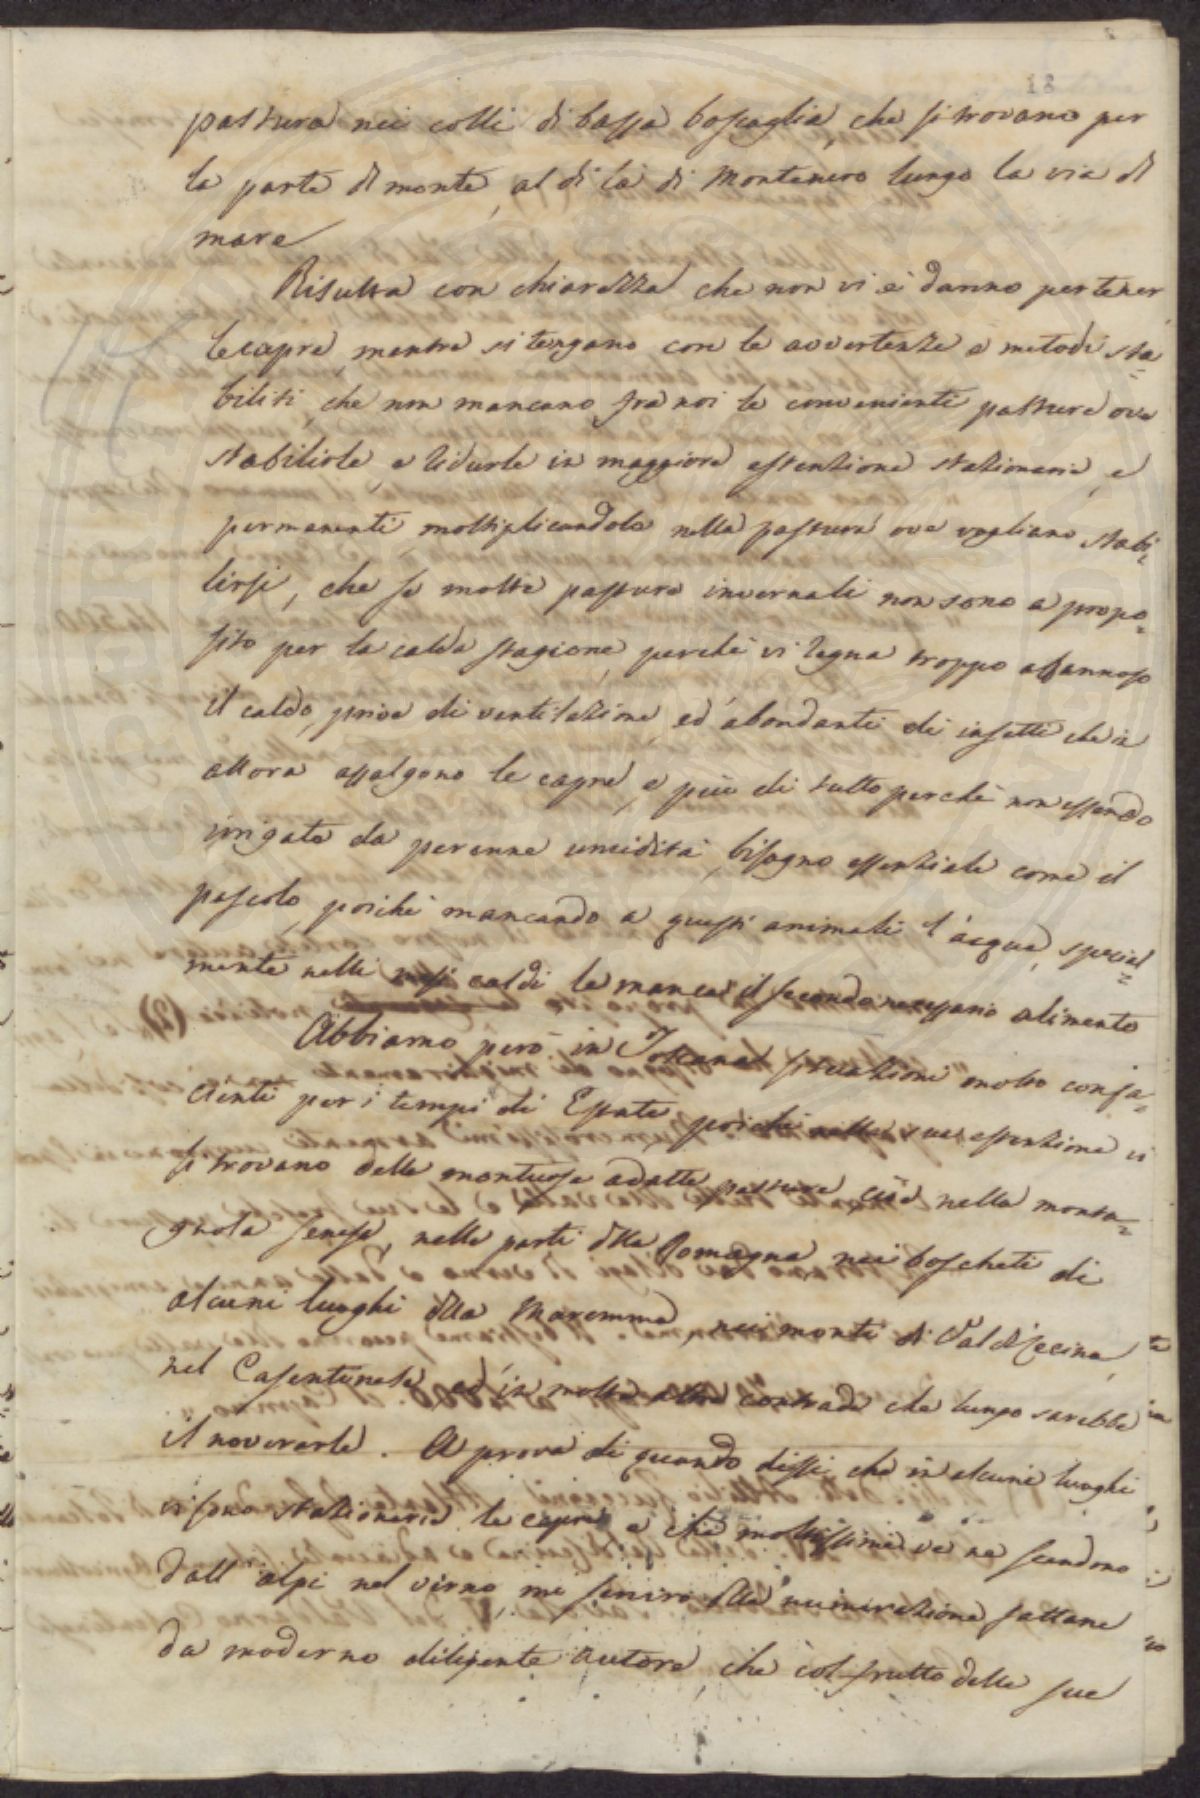 18
pastura nei colli di bassa boscaglia, che si trovano per
la parte di monte, al di là di Montenero lungo la via di
mare
Risulta con chiarezza che non vi è danno per tener
le capre, mentre si tengano con le avvertenze e metodi sta=
biliti, che non mancano fra noi le convenienti pasture ove
stabilirle, e ridurle in maggiore estenzione stazionarie, e
permanenti moltiplicandole nella pastura ove vogliano stabi=
lirsi, che se molte pasture invernali non sono a propo=
sito per la calda stagione, perchè vi regna troppo affannoso
il caldo, prive di ventilazione, ed abondanti di insetti che in
allora assalgono le capre, e più di tutto perchè non essendo
irrigate da perenne umidità, bisogno essenziale come il
pascolo, poichè mancando a questi animali l'acqua, special=
mente nelli mesi caldi le manca il secondo necessario alimento
Abbiamo però in Toscana situazioni molto confa=
cienti per i tempi di Estate, poichè nella sua estenzione vi
si trovano delle montuose adatte pasture cioè nella monta=
gnola senese, nelle parti della Romagna, nei boscheti di
alcuni luoghi della Maremma, nei monti di Val di Cecina,
nel Casentinese, ed in molte altre contrade che lungo sarebbe
il noverarle. A prova di quando dissi, che in alcuni luoghi
vi sono stazionarie le capre e che moltissime ve ne scendono
dall'alpi nel verno, me servirò della numerazione fattane
da moderno diligente autore, che col frutto delle sue